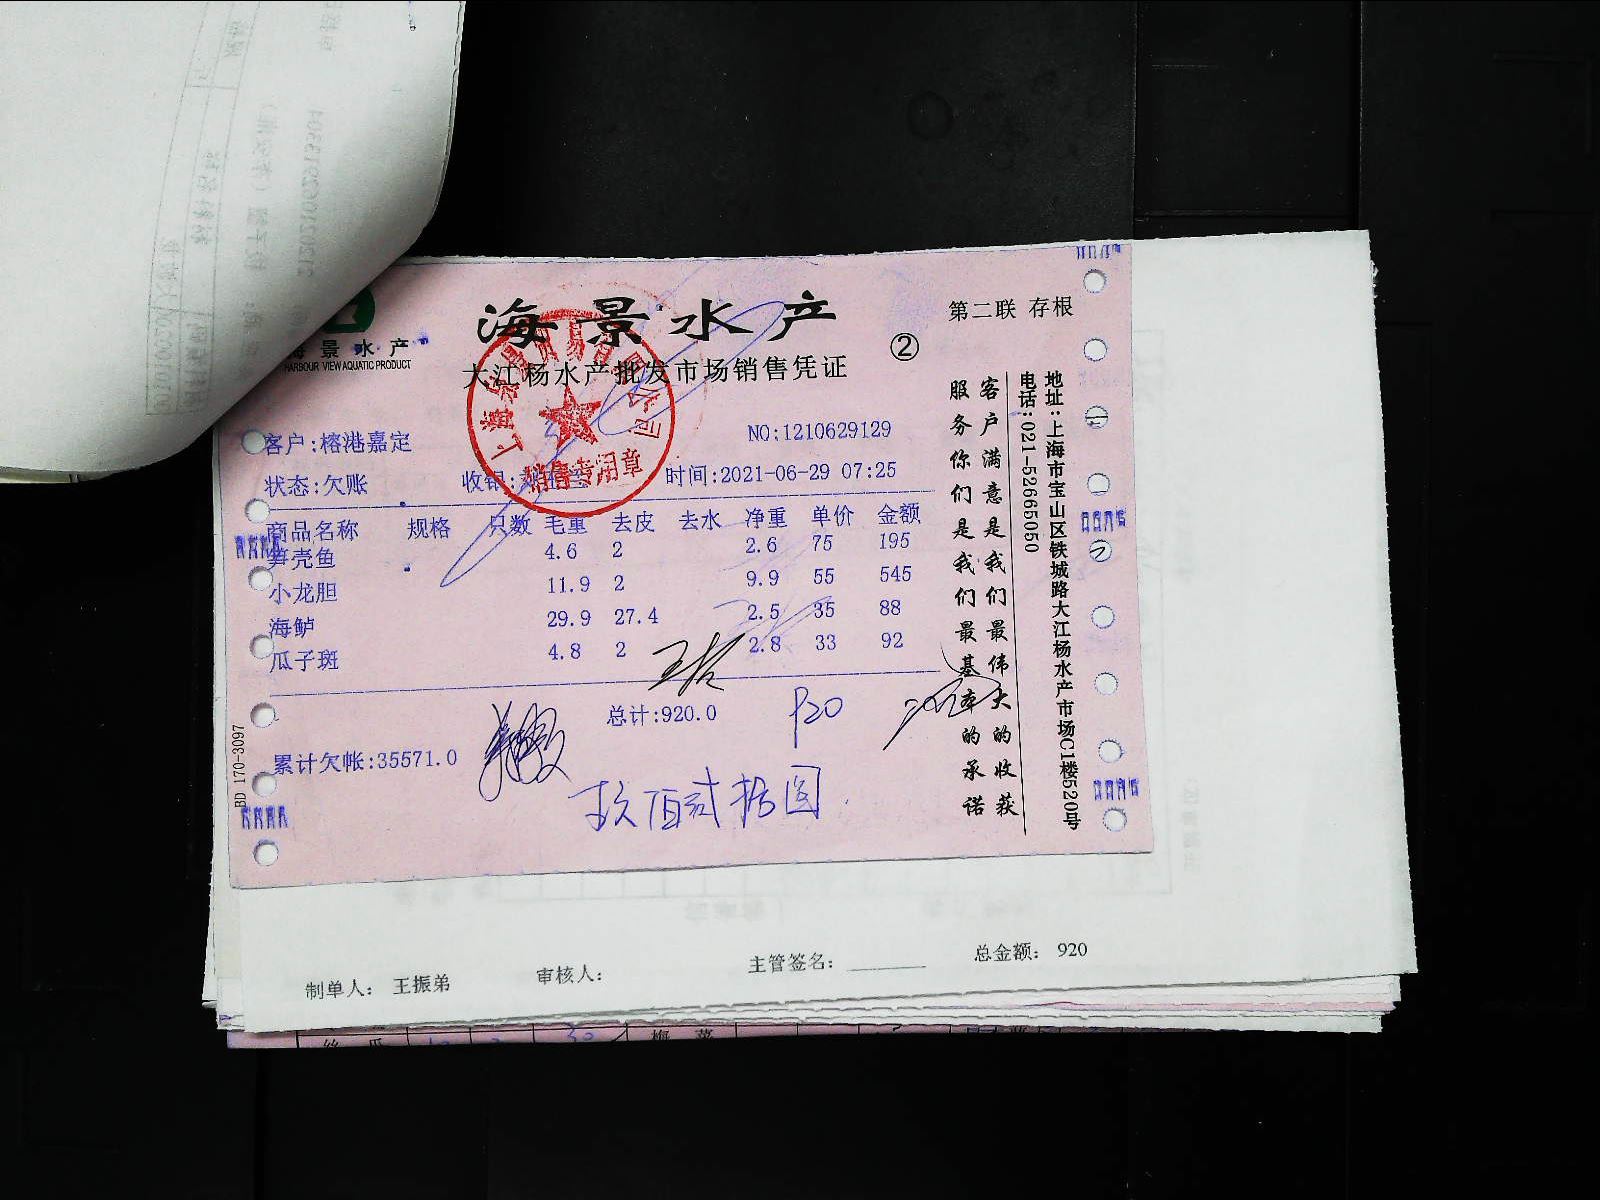 海景水产
海景水产
HARBOUR VIEW AQUATIC PRODUCT
大江杨水产批发市场销售凭证
②
第二联 存根
客户:榕港嘉定
NO:1210629129
状态:欠账 收银: 时间:2021-06-29 07:25
商品名称 规格 只数 毛重 去皮 去水 净重 单价 金额
笋壳鱼 4.6 2 2.6 75 195
小龙胆 11.9 2 9.9 55 545
海鲈 29.9 27.4 2.5 35 88
瓜子斑 4.8 2 2.8 33 92
总计:920.0
920
累计欠帐:35571.0
玖佰贰拾圆
上海景贸易有限公司
销售专用章
客户满意是我们最伟大的收获
服务你们是我们最基本的承诺
地址:上海市宝山区铁城路大江杨水产市场C1楼520号
电话:021-52665050
BD 170-3097
制单人: 王振弟 审核人: 主管签名: 总金额: 920
丝瓜 30 梅菜